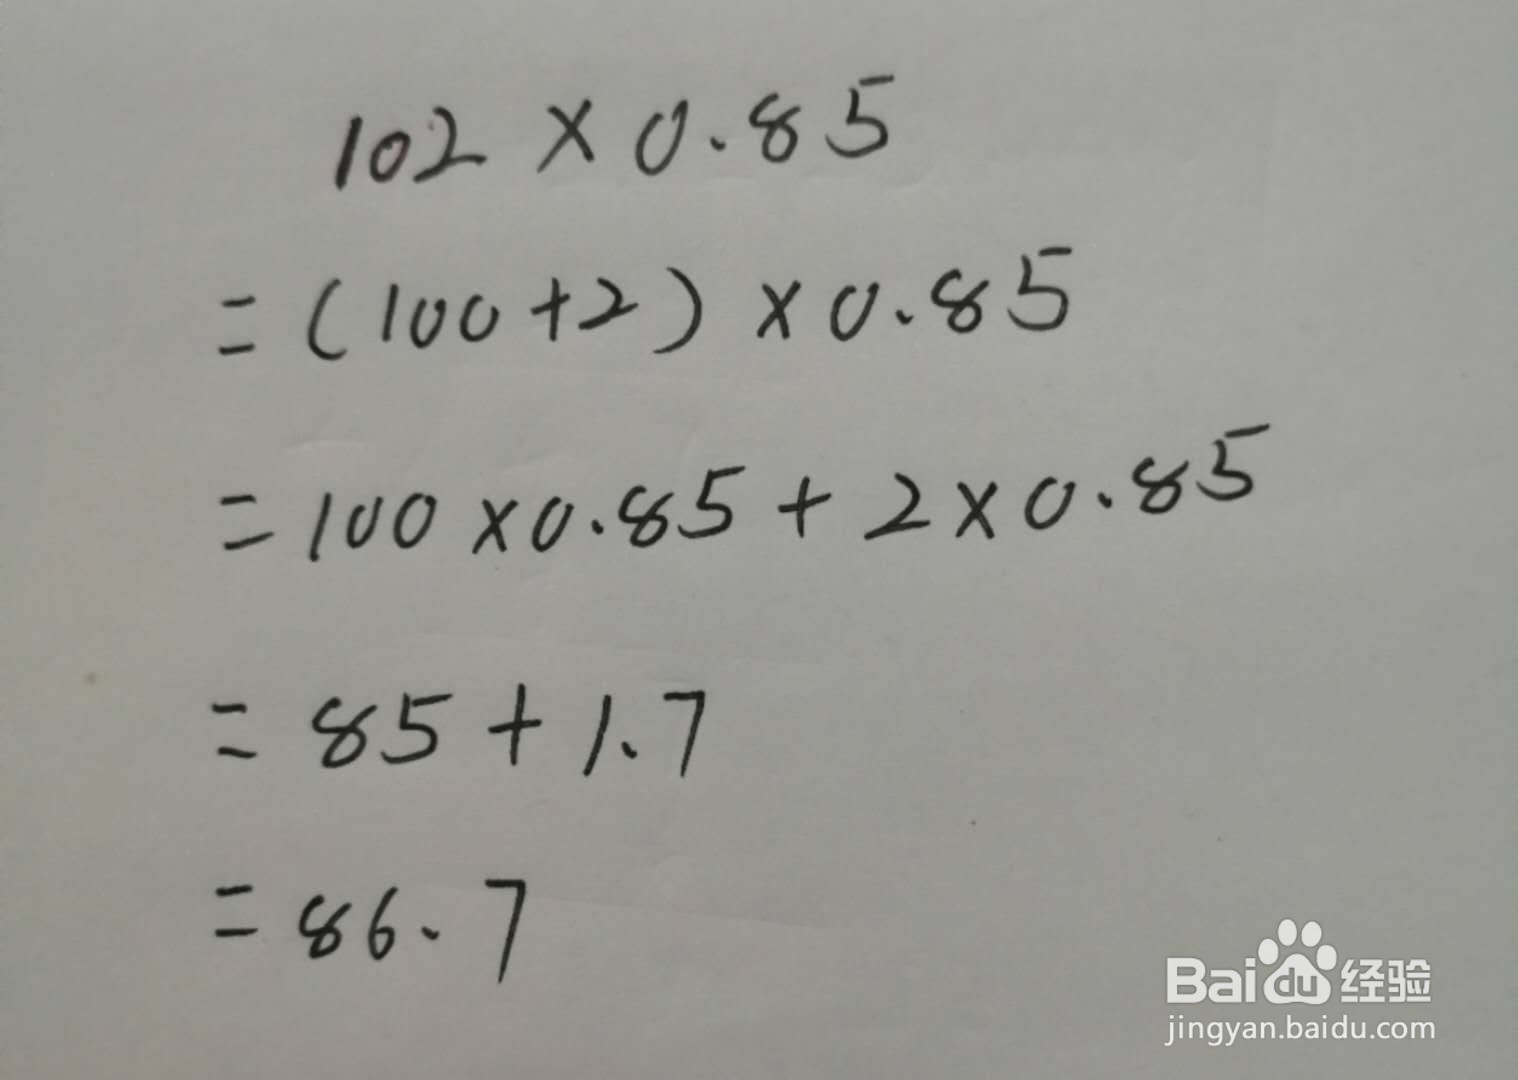 102×0.85
=(100+2)×0.85
=100×0.85+2×0.85
=85+1.7
=86.7
Baidu经验
jingyan.baidu.com